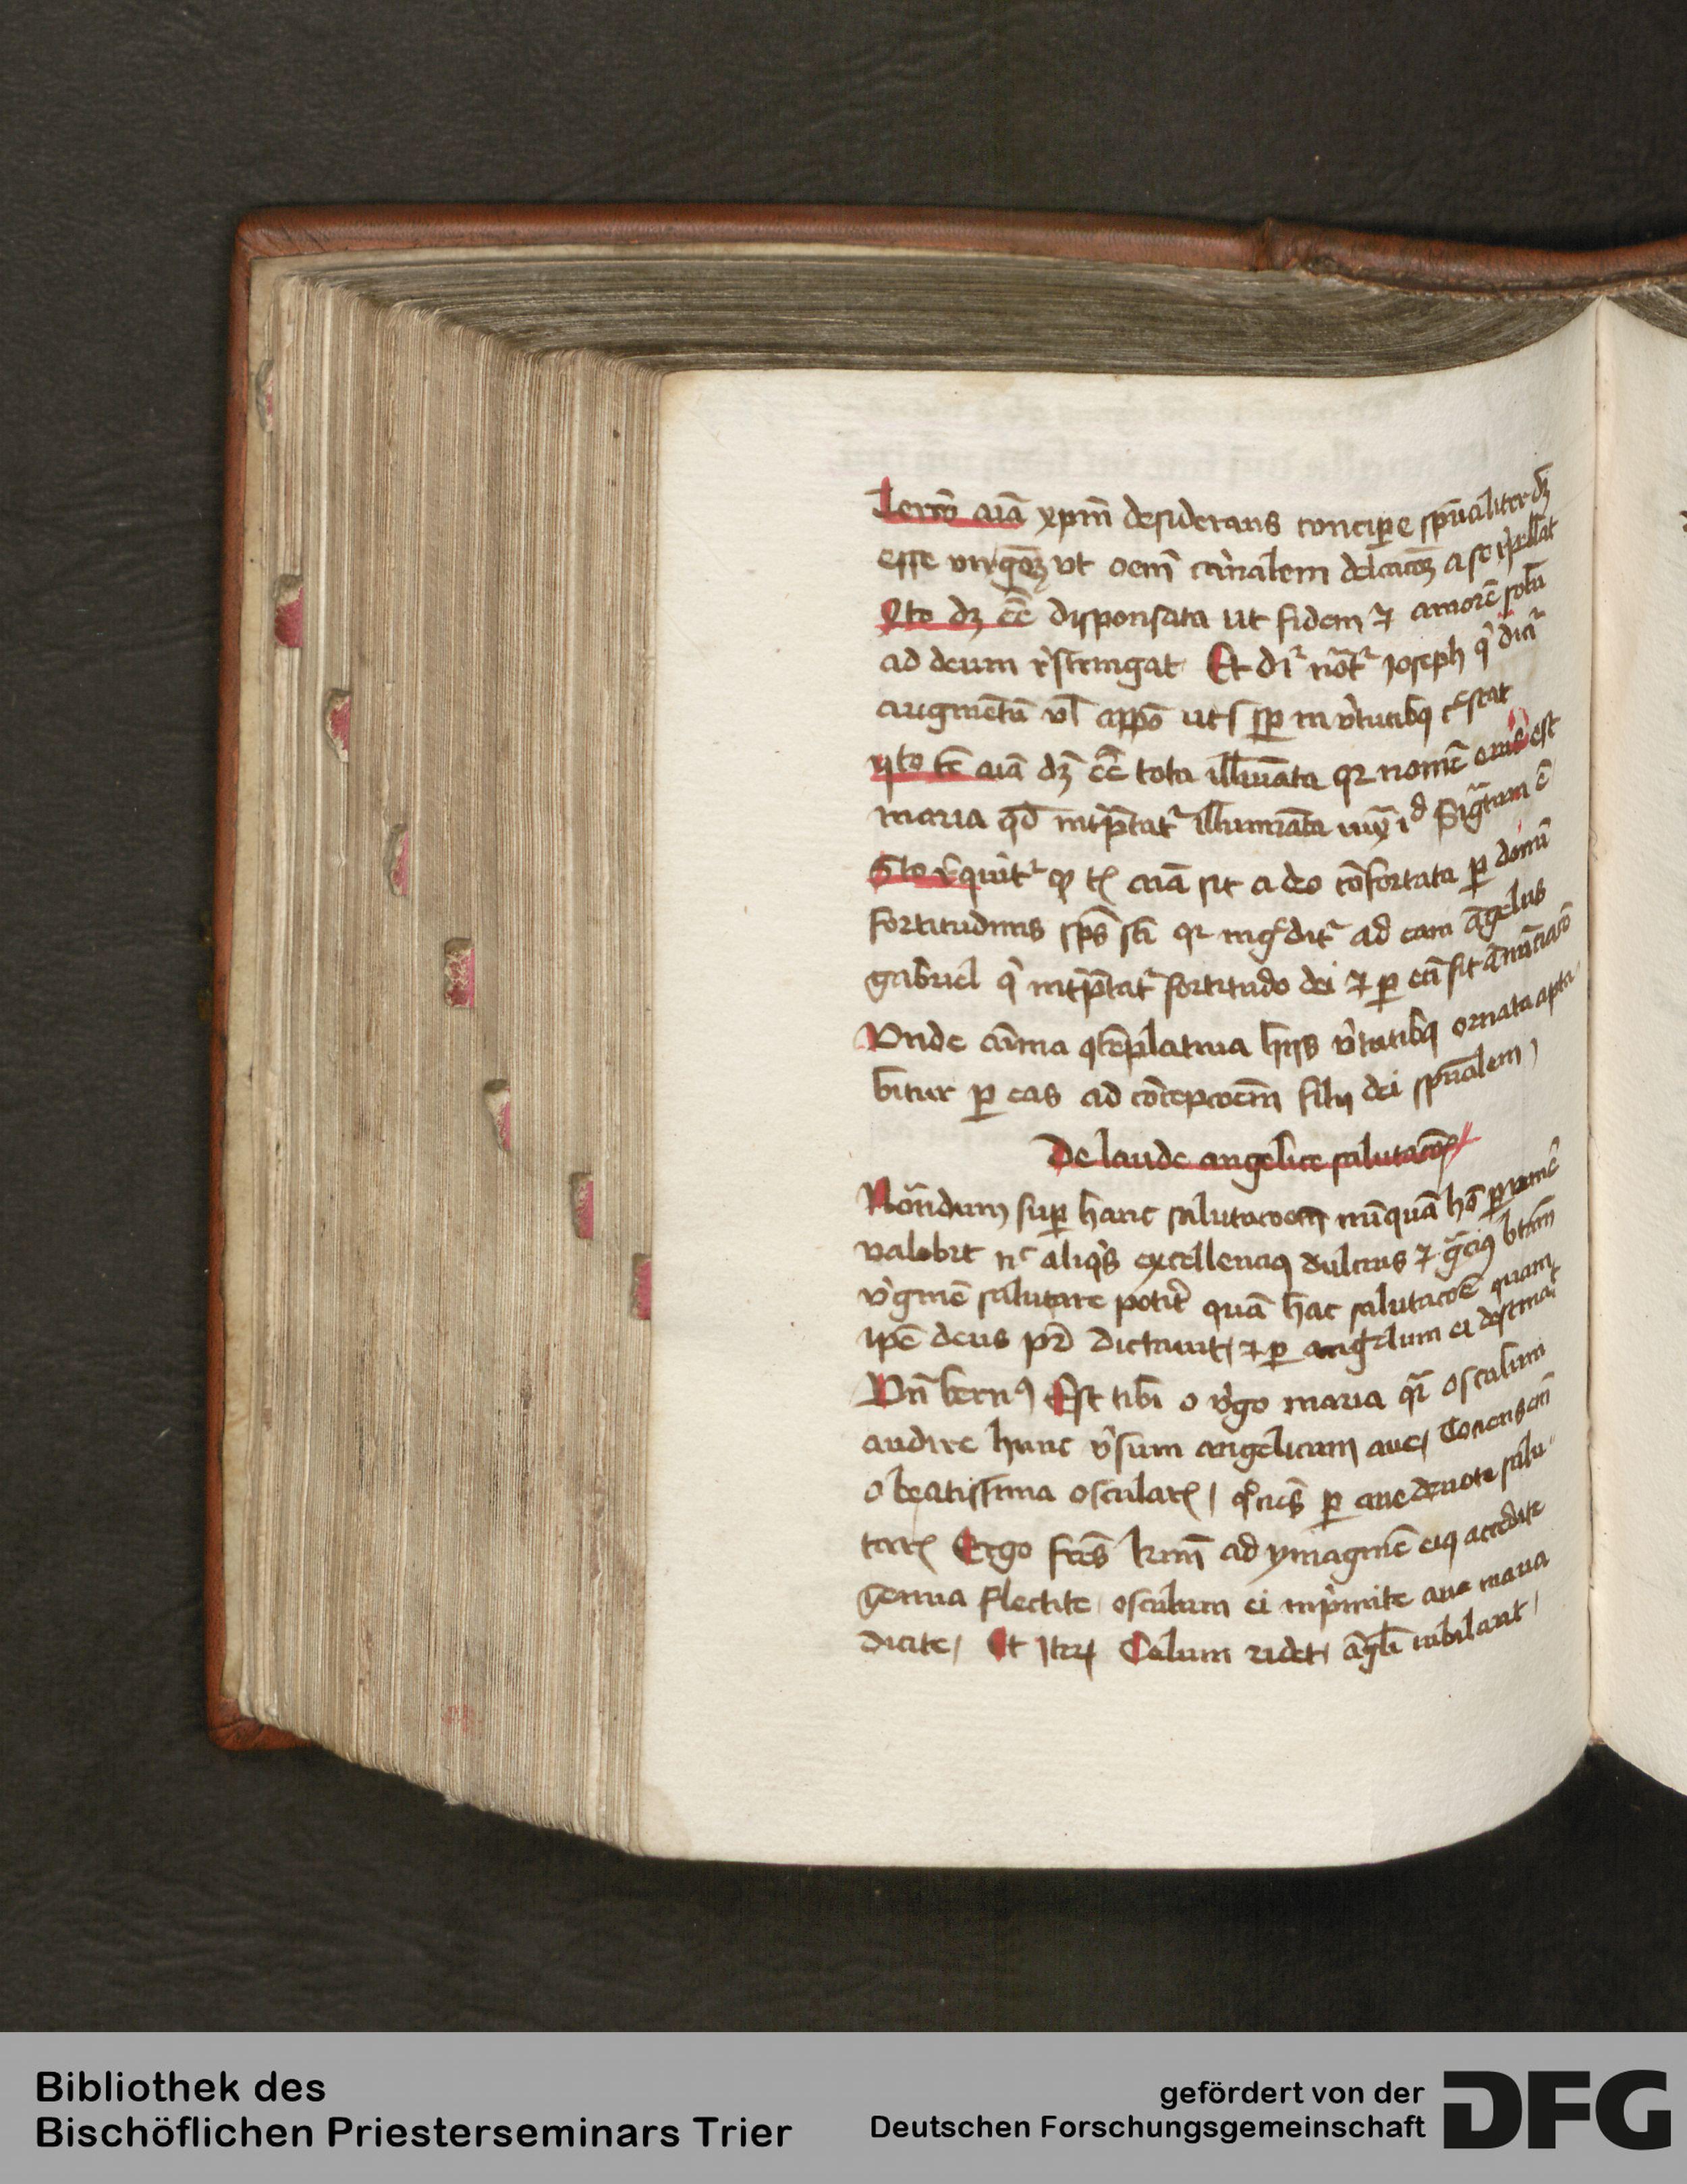 Tercio aīa xpm̄ desiderans concipe spūaliter dꝫ
esse virgoꝫ vt oem̄ carnalem delcacoꝫ a se repellat
Qto dꝫ ēē disponsata ut fidem ⁊ amorē sotū
ad deum rͥstringat Et dr̄ nōt̄ Joseph qͥ dicit̄
augmētū vl̄ appō ut sp̄ in vͥtutibꝫ cͤscat
qto t̄c aīa dꝫ ēē tota illīuata qr nomē eius est
maria qd̄ intp̄tat̄ illuminata
Sto rͥquirit̄ ꝙ aīa sit a deo cōfortata ꝑ donū
fortitudinis sp̄s sc̄i qr ingͥdit̄ ad eam āgelus
gabriel qͥ intp̄tat̄ fortitudo dei ⁊ ꝑ eū fit ānūciacō
Vnde aīma ꝯtēplatiua hijs vͥtutibꝫ ornata apta
bitur ꝑ eas ad cōcepcoēm filij dei spūalem
De laude angelice salutacōis
Nōtandum suꝑ hanc salutacoem nūquā hō
valebit nͨ aliqͥs excellencꝰ dulcius ⁊ gr̄ciꝰ btām
vͥginē salutare potit̄ quā hac salutacoē quam
ipē deus pr̄ dictauit ⁊ ꝑ angelum ei destinat
Vn̄ bernꝰ Est tibi o vͥgo maria qr̄ osculum
audire hunc vͥsum angelicum aue Tociens em̄
o beatissima oscularis qͦciēs ꝑ aue deuote salu
taris Ergo fr̄es kr̄mi ad ymaginē eiꝰ accedite
genua flectite osculum ei inpͥmite aue maria
dicite Et Iteꝝ Celum ridet āgli iubilant
Bibliothek des
Bischöflichen Priesterseminars Trier
gefördert von der
Deutschen Forschungsgemeinschaft
DFG